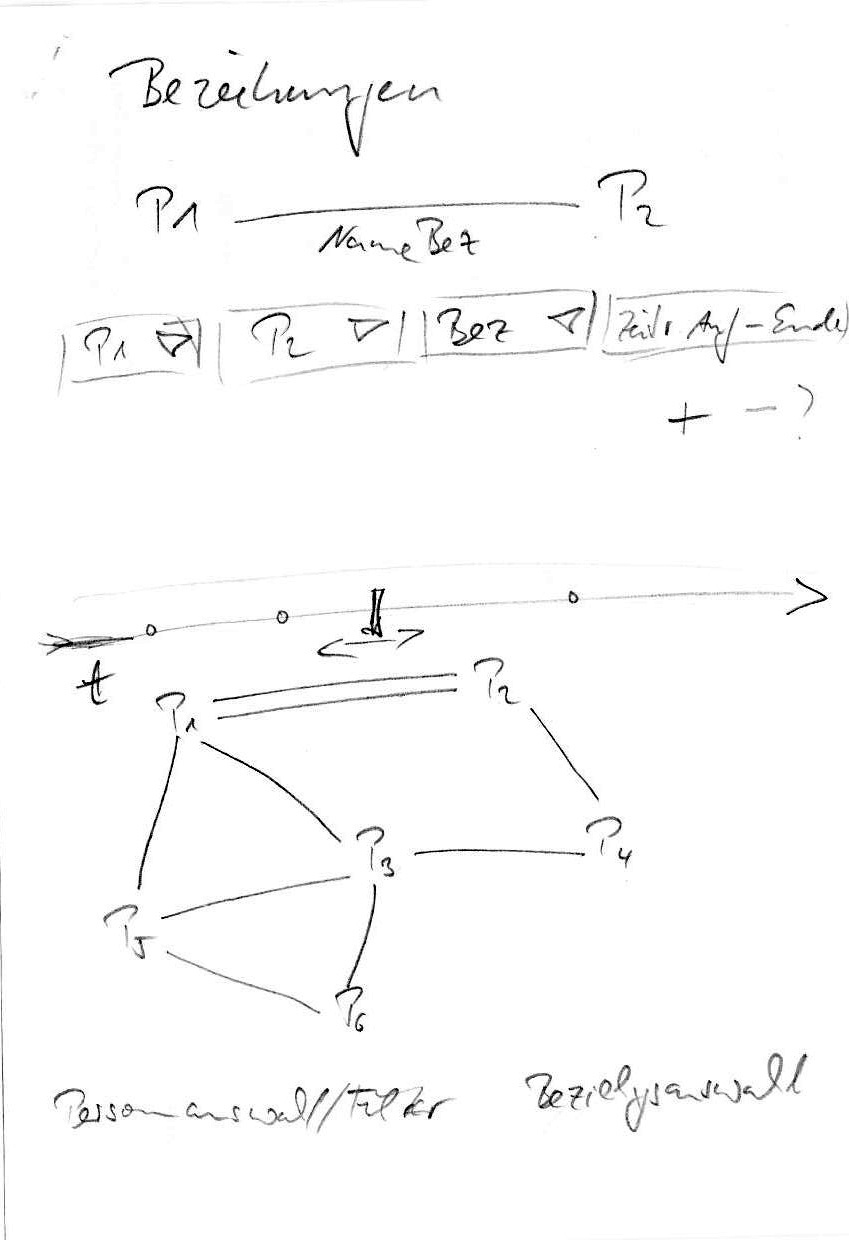 Beziehungen
P1 P2
Name Bez
P1 P2 Bez Zeitr Anf - Ende
+ - ?
t
P1 P2
P3 P4
P5
P6
Personenauswahl/Filter Beziehgsauswahl